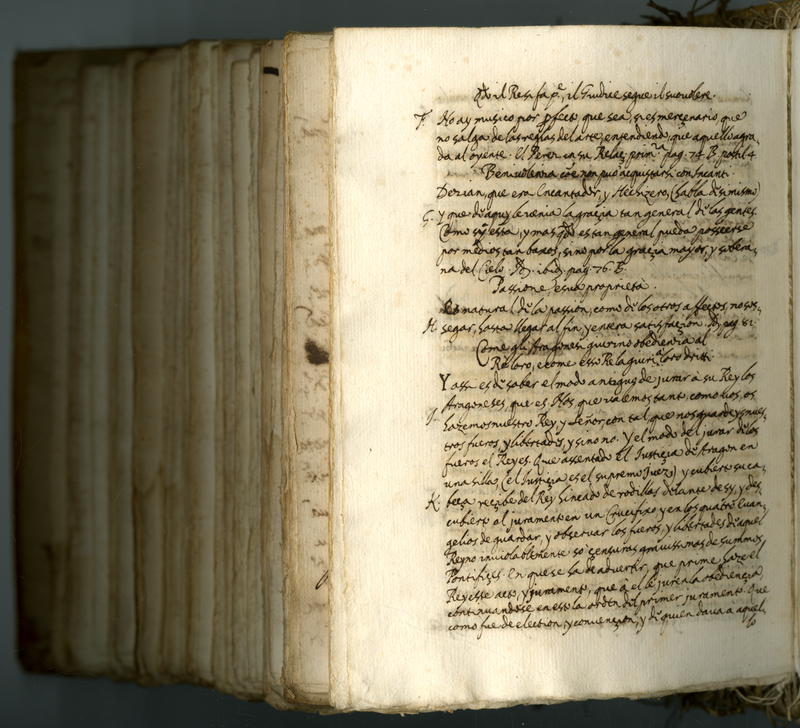 il Giudice segue il suo volere.
F. No ay musico por perfecto, que sea, si es mercenario, que
no salga de las reglas del arte, entendiendo, que aquello agra-
da al oyente. El Perez en su Relaz. prim.ra pag. 74. B. postil. 4
Benivolenza come non può acquistarsi con Incanti.
Dezian, que era Encantador, y Hechizero, (habla de si mismo)
G. y que de aquy le venia la gracia tan general de las gentes.
Como sy esta, y mas es tan general pueda posseerse
por medios tan baxos, sino por la gracia mayor, y sobera-
na del Cielo. ibid. pag. 76. B.
Passione, e sua proprietà.
Es natural de la passion, como de los otros affectos, no sos-
H. segar, hasta llegar al fin, y entera satisfazion. pag. 82.
Come gli Aragonesi giurino obedienza al
Rè loro, e come esso Re la giuri loro dritti.
Y assi es de saber el modo antiguo de jurar à su Rey los
Aragoneses, que es. Nos, que valemos tanto como vos, os
I. hazemos nuestro Rey, y Señor, con tal que nos guardeys nues-
tros fueros, y libertades, y sino no. Y el modo del jurar de los
fueros el Rey es. Que assentado el Justicia de Aragon en
una silla (el Justicia es el supremo Juez) y cubierto su ca-
K. beça recibe del Rey hincado de rodillas delante de sy, y des-
cubierto al juramento en un Crucifixo y en los quatro Euan-
gelios de guardar, y observar los fueros, y libertades de aquel
Reyno inviolablemente so censuras gravissimas de summos
Pontifices. En que se ha de advertir, que primero haze el
Rey esse acto, y juramento, que à el le juren la obediencia,
continuandose en esto la orden del primer juramento. Que
como fue de election, y convencion, y de quien dava a aquel,
lo